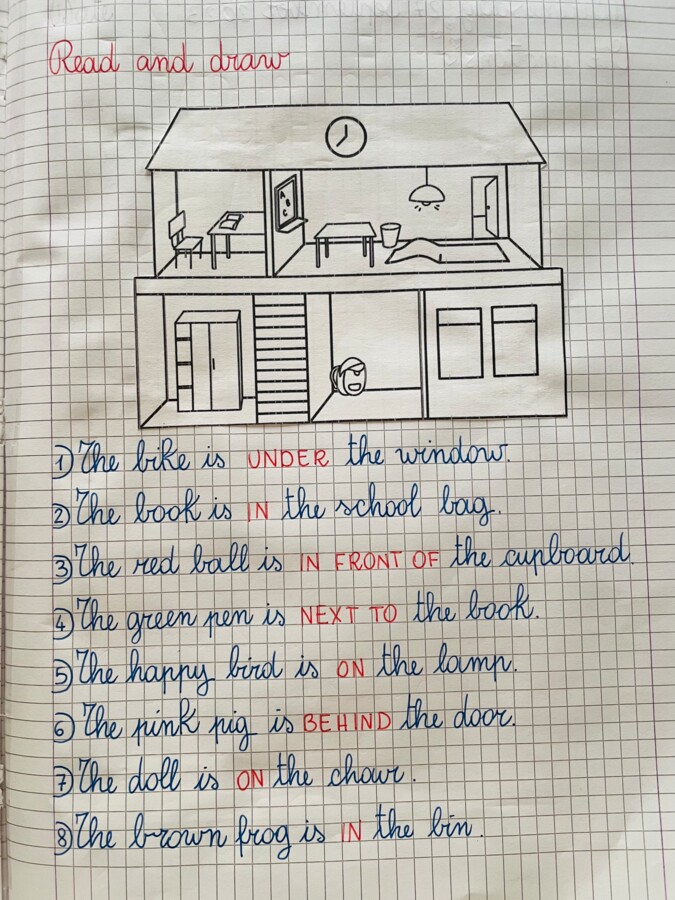 Read and draw
A
B
C
1) The bike is UNDER the window.
2) The book is IN the school bag.
3) The red ball is IN FRONT OF the cupboard.
4) The green pen is NEXT TO the book.
5) The happy bird is ON the lamp.
6) The pink pig is BEHIND the door.
7) The doll is ON the chair.
8) The brown frog is IN the bin.